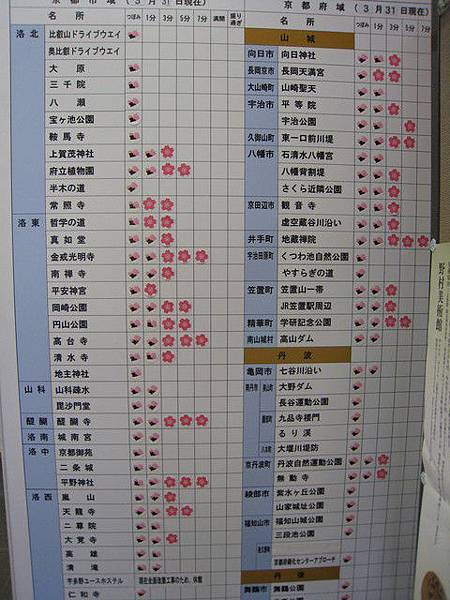 京都市域 (3月31日現在)
名所 つぼみ 1分 3分 5分 7分 満開 盛り過ぎ
洛北 比叡山ドライブウエイ
奥比叡ドライブウエイ
大原
三千院
八瀬
宝ヶ池公園
鞍馬寺
上賀茂神社
府立植物園
半木の道
常照寺
洛東 哲学の道
真如堂
金戒光明寺
南禅寺
平安神宮
岡崎公園
円山公園
高台寺
清水寺
地主神社
山科 山科疎水
毘沙門堂
醍醐 醍醐寺
洛南 城南宮
洛中 京都御苑
二条城
平野神社
洛西 嵐山
天龍寺
二尊院
大覚寺
高雄
清滝
宇多野ユースホステル 現在全面改築工事のため、休館
仁和寺
京都府域 (3月31日現在)
名所 つぼみ 1分 3分 5分 7分
山城
向日市 向日神社
長岡京市 長岡天満宮
大山崎町 山崎聖天
宇治市 平等院
宇治公園
久御山町 東一口前川堤
八幡市 石清水八幡宮
八幡背割堤
さくら近隣公園
京田辺市 観音寺
虚空蔵谷川沿い
井手町 地蔵禅院
宇治田原町 くつわ池自然公園
やすらぎの道
笠置町 笠置山一帯
JR笠置駅周辺
精華町 学研記念公園
南山城村 高山ダム
丹波
亀岡市 七谷川沿い
南丹市 美山町 大野ダム
長谷運動公園
園部町 九品寺楼門
るり渓
八木町 大堰川堤防
京丹波町 丹波自然運動公園
無動寺
綾部市 紫水ヶ丘公園
山家城址公園
福知山市 福知山城公園
三段池公園
京都府緑化センターアプローチ
丹後
舞鶴市 舞鶴公園
野村美術館